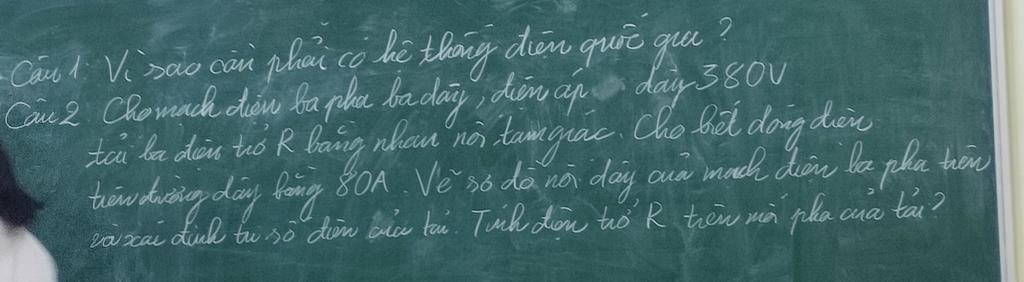 Câu 1. Vì sao cần phải có hệ thống điện quốc gia?
Câu 2 Cho mạch điện ba pha ba dây, điện áp dây 380V
tải ba điện trở R bằng nhau nối tam giác. Cho biết dòng điện
trên đường dây bằng 80A. Vẽ sơ đồ nối dây của mạch điện ba pha trên
và xác định trị số điện của tải. Tính điện trở R trên mỗi pha của tải?